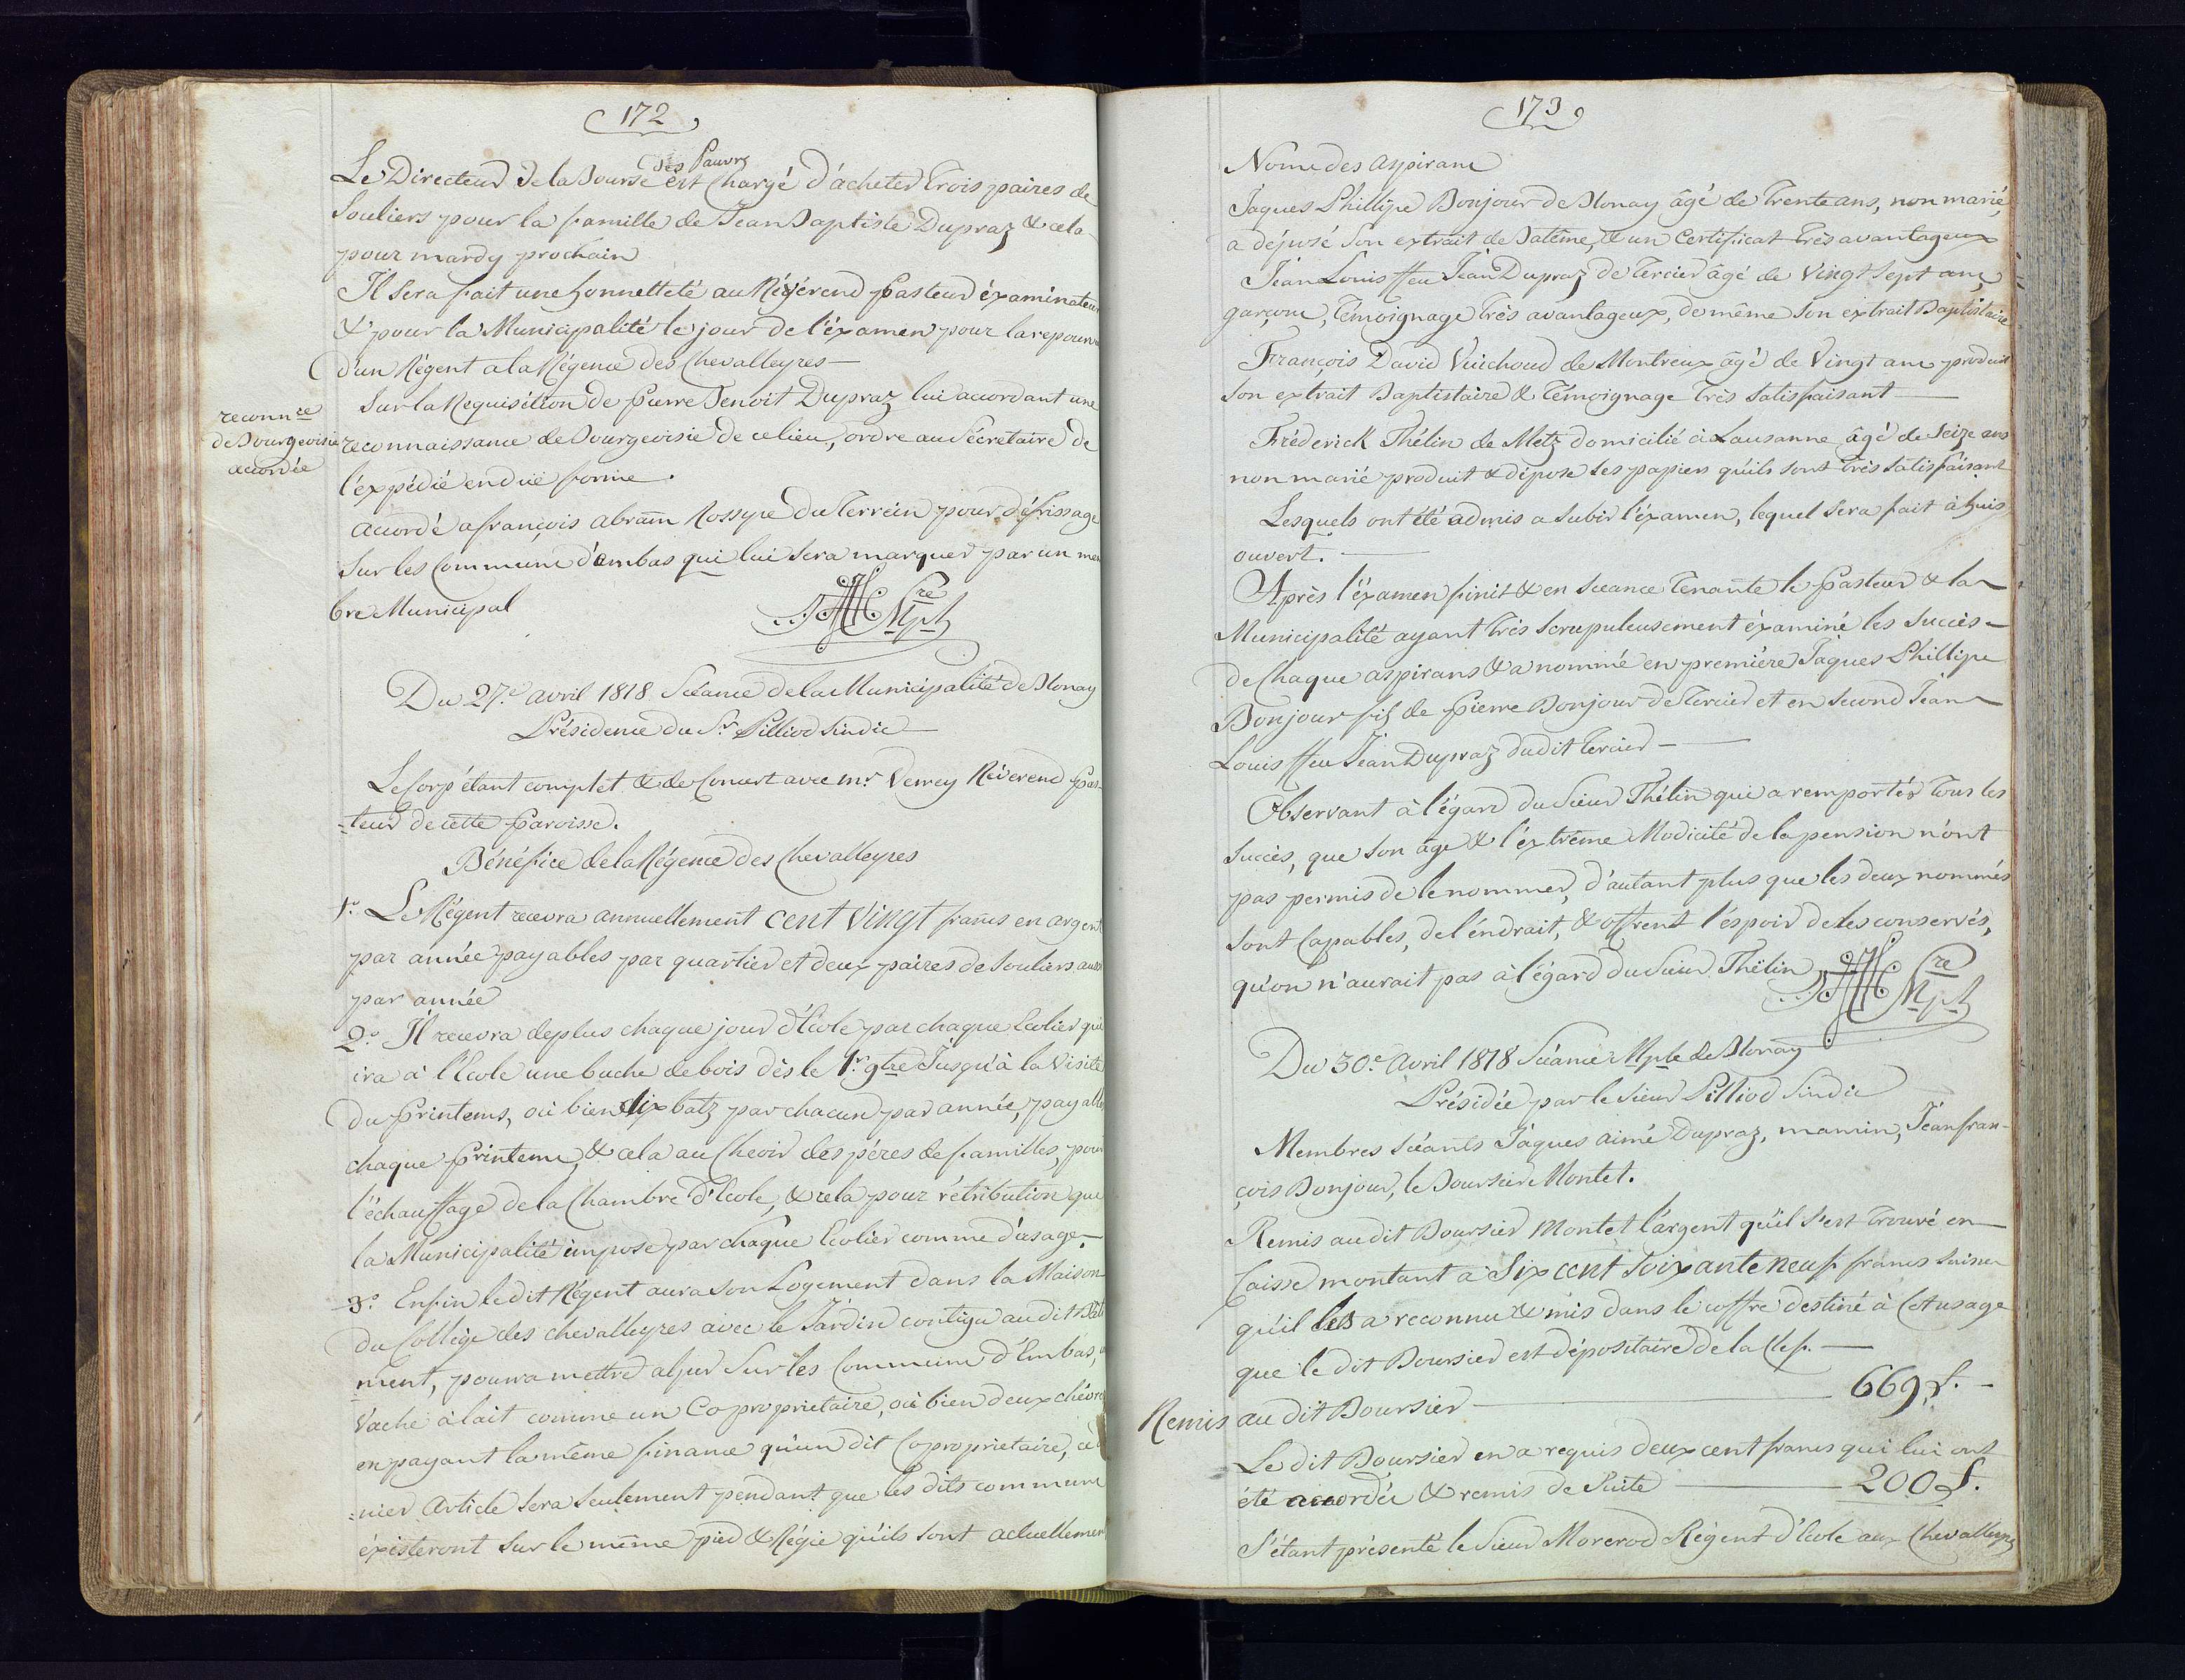 172
Le Directeur de la Bourse des Pauvres est chargé d'acheter trois paires de
souliers pour la famille de Jean Baptiste Dupraz & cela
pour mardy prochain
Il sera fait une honnetteté au Révérend Pasteur éxaminateur
& pour la Municipalité le jour de l'éxamen pour la repourvue
d'un Régent a la Régence des Chevalleyres —
reconn.ce
de Bourgeoisie
accordée
Sur la Requisition de Pierre Benoit Dupraz lui accordant une
reconnaissance de Bourgeoisie de ce lieu, ordre au Sécretaire de
l'éxpédié en düe forme.
accordé a françois abram Rossyre du Terrein pour défrissage
sur les Commune d'embas qui lui sera marquer par un mem
bre Municipal
Sre Mplt
Du 27.e avril 1818 Scéance de la Municipalité de Blonay
Présidence du Sr. Pilliod Sindic —
Le Corp étant complet & de Concert avec mr. Verrey Révérend Pas-
-teur de cette Paroisse.
Bénéfice de la Régence des Chevalleyres
1.o Le Régent recevra annuellement cent vingt francs en argent
par année payables par quartier et deux paires de souliers aussi
par année
2.o Il recevra deplus chaque jour d'Ecole par chaque Ecolier qui
ira à l'Ecole une buche de bois dès le 1.r 9bre Jusqu'à la Visite
du Printems, où bien dix batz par chacun par année, payable
chaque Printems, & cela au Choix des péres de familles, pour
l'échauffage de la Chambre d'Ecole, & cela pour rétribution que
la Municipalité impose par chaque Ecolier comme d'usage. —
3.o Enfin le dit Régent aura son Logement dans la Maison
du Collège des chevalleyres avec le Jardin contigu au dit Bâti
ment, pourra mettre alpér sur les Commune d'Embas,
Vache à lait comme un Coproprietaire, où bien deux chévres
en payant la même finance qu'un dit Coproprietaire,
-nier article sera seulement pendant que les dits commune
éxisteront sur le même pied & Régie qu'ils sont actuellement
173
Nome des aspirans
Jaques Phillipe Bonjour de Blonay âgé de Trente ans, non marié,
a déposé son extrait de Batême, & un Certificat très avantageux
Jean Louis ffeu Jean Dupraz de Tercier âgé de Vingt sept ans,
garçon, Témoignage très avantageux, de même son extrait Baptistaire
François David Vuichoud de Montreux âgé de Vingt ans produit
son extrait Baptistaire & Témoignage très satisfaisant —
Fréderick Thélin de Metz domicilié à Lausanne âgé de seize ans
non marié produit & dépose ses papiers qu'ils sont très satisfaisant
Lesquels ont été admis a subir l'éxamen, lequel sera fait à huis
ouvert. —
Après l'éxamen finit & en sceance tenante le Pasteur & la
Municipalité ayant très scrupuleusement éxaminé les succès —
de Chaque aspirans & a nommé en première Jaques Phillipe
Bonjour fils de Pierre Bonjour de Tercier et en second Jean
Louis ffeu Jean Dupraz dudit Tercier —
Observant à l'égard du Sieur Thélin qui a remportér tous les
succès, que son âge & l'éxtrême Modicité de la pension n'ont
pas permis de le nommer, d'autant plus que les deux nommés
sont Capables, de l'éndrait, & offrent l'éspoir de les conservés,
qu'on n'aurait pas à l'égard du Sieur Thélin
Sre Mplt
Du 30.e Avril 1818 Scéance Mple de Blonay
Présidée par le Sieur Pilliod Sindic
Membres scéants Jaques aimé Dupraz, mamin, Jean fran-
çois Bonjour, le Boursier Montet.
Remis au dit Boursier Montet l'argent qu'il s'est trouvé en
Caisse montant à Six cent soixante neuf francs suisse
qu'il les a reconnu & mis dans le coffre destiné à Cet usage
que le dit Boursier est dépositaire de la Clef. —
Remis au dit Boursier — 669 f. —
Le dit Boursier en a requis deux cent francs qui lui ont
été accordée & remis de Suite — 200 f.
S'étant présenté le Sieur Morerod Régent d'Ecole aux Chevalleyres